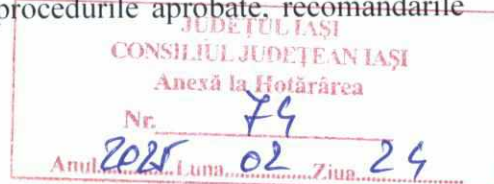 procedurile aprobate, recomandările
JUDEȚUL IAȘI
CONSILIUL JUDEȚEAN IAȘI
Anexă la Hotărârea
Nr. 74
Anul 2025 Luna 02 Ziua 24